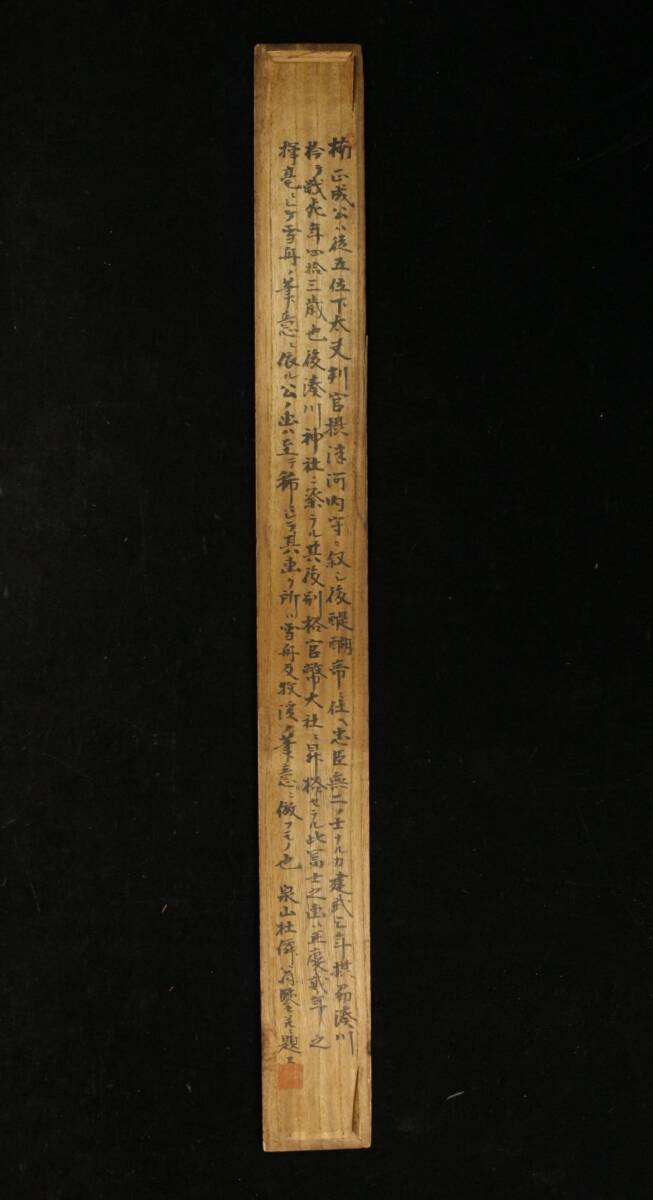 楠正成公ハ従五位下太夫判官摂津河内守ニ叙シ後醍醐帝ニ仕ヘ忠臣無二ノ士ナルカ建武三年摂州湊川
於テ戦死年四拾三歳也後湊川神社ニ祭ラル其後別格官幣大社ニ昇格セラル此冨士之画ハ正慶弐年之
揮毫ニシテ雪舟ノ筆意ニ依ル公ノ画ハ至テ稀ニシテ其画ク所ハ雪舟及牧渓ノ筆意ニ倣フモノ也 泉山杜 題ス